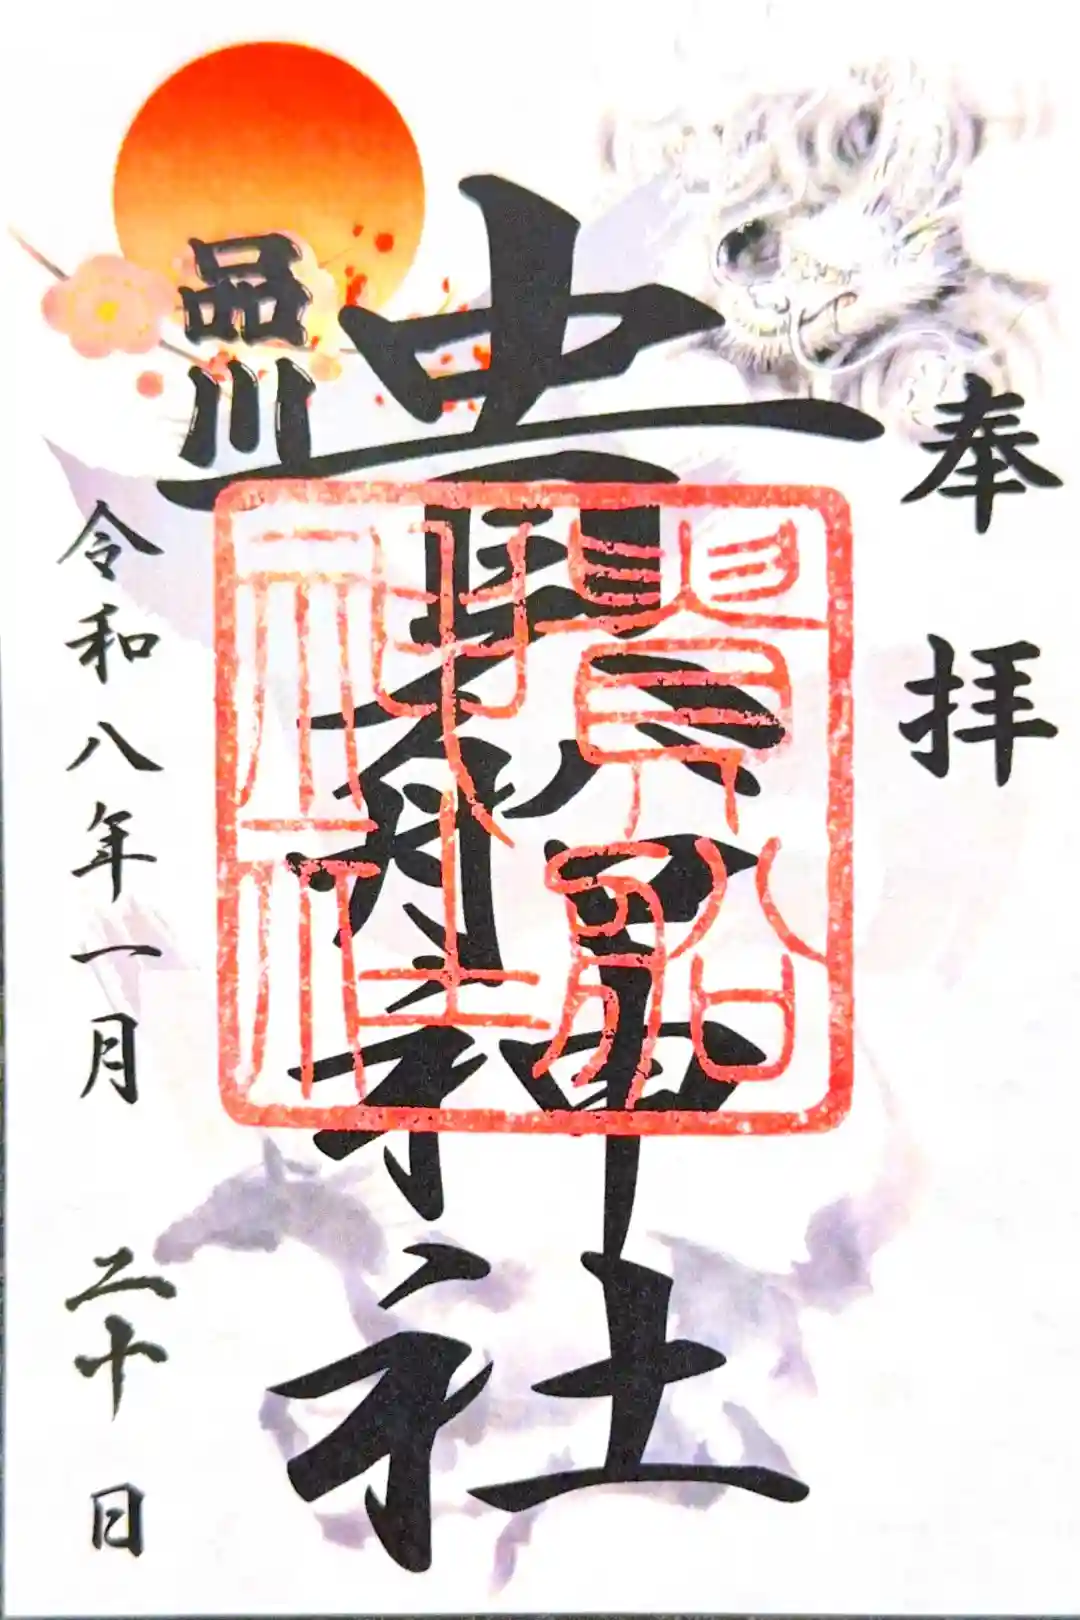 奉拝
貴船神社
貴船神社
品川
令和八年一月二十日